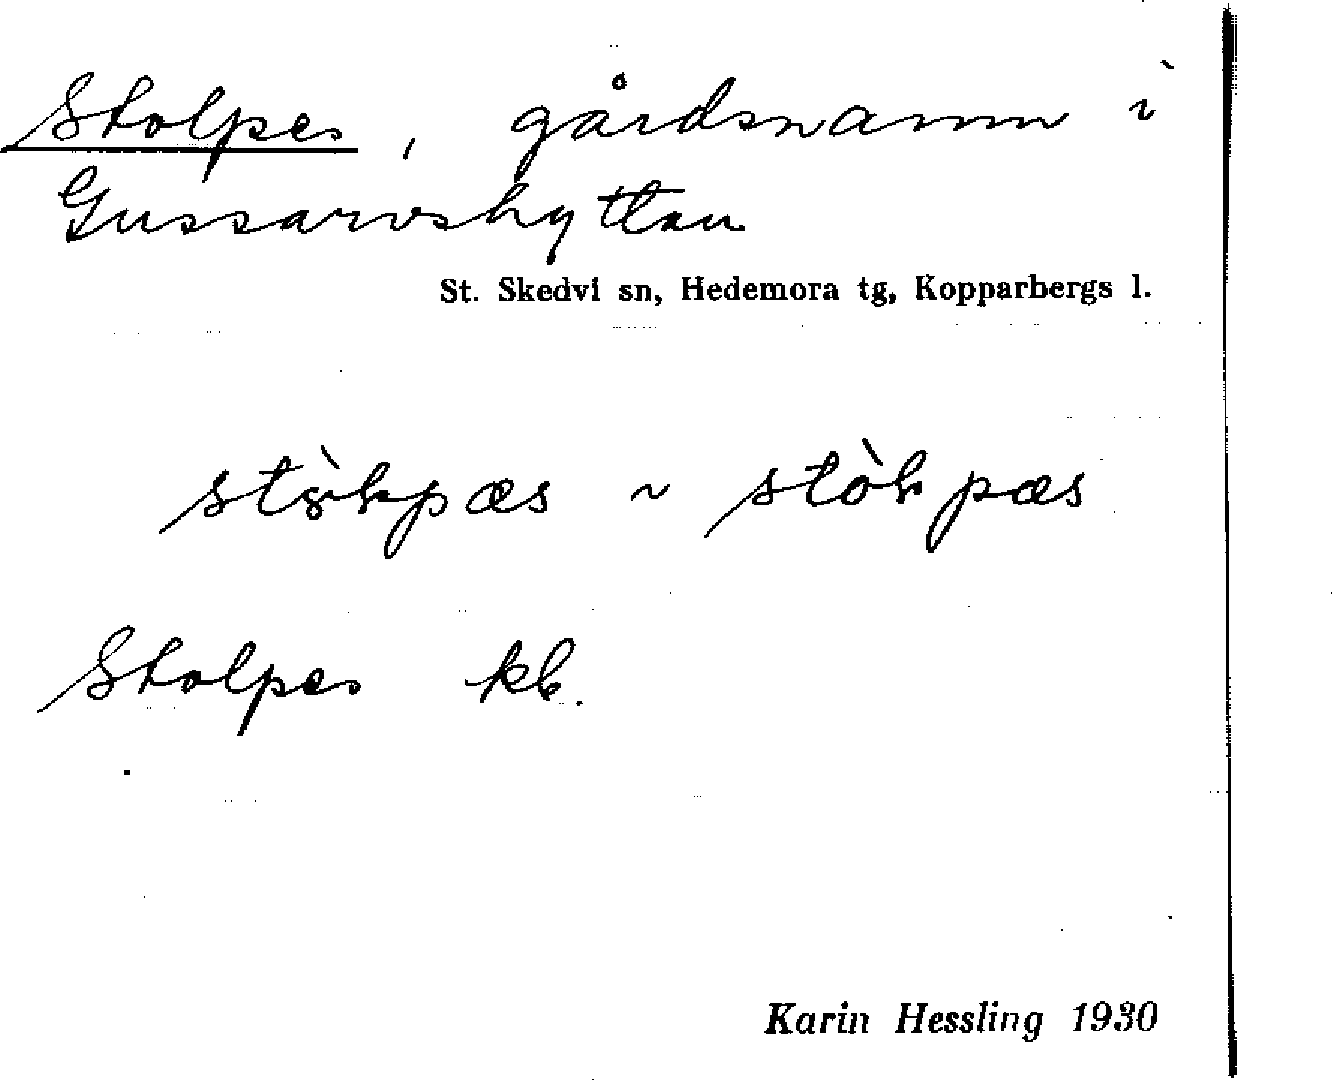 Stolpes, gårdsnamn i
Gussarvshyttan
St. Skedvi sn, Hedemora tg, Kopparbergs l.
~
Stolpes kb.
Karin Hessling 1930